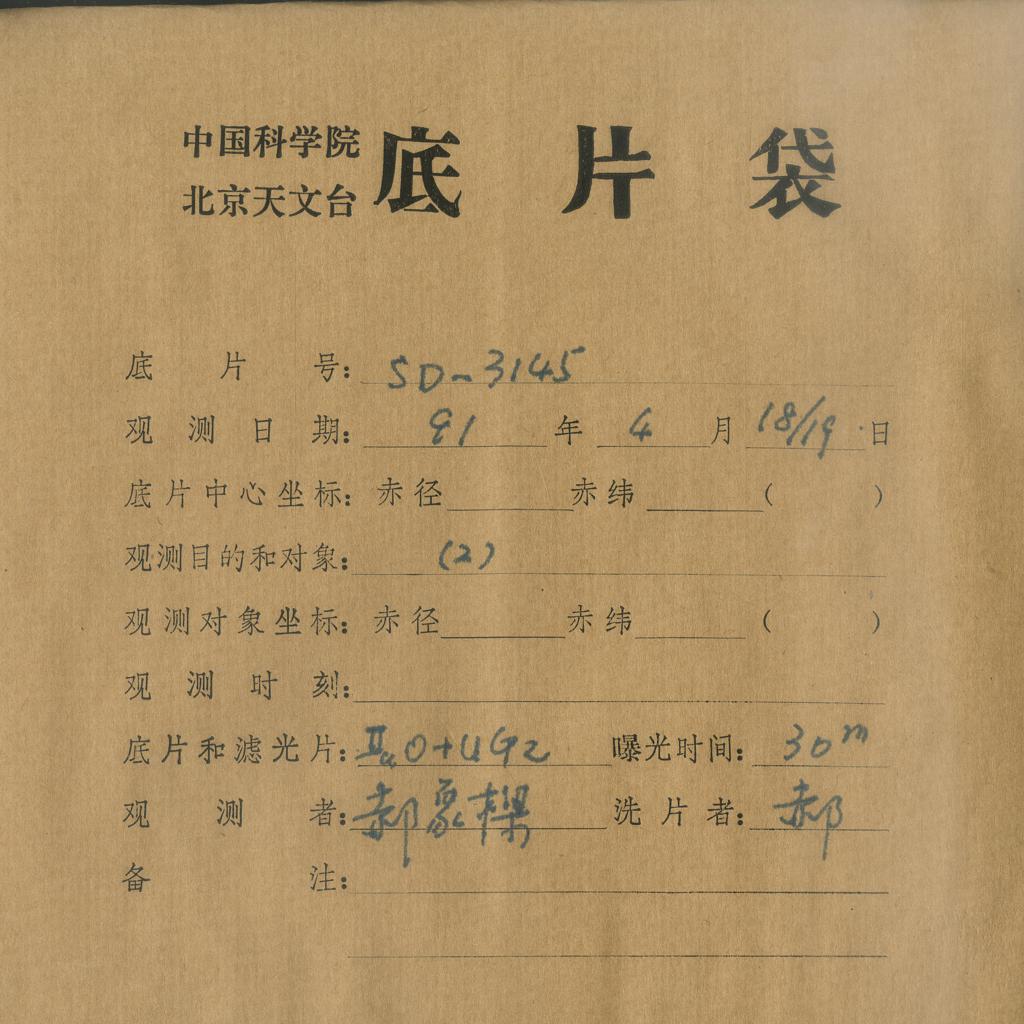 中国科学院
北京天文台
底片袋
底片号: SD-3145
观测日期: 91 年 4 月 18/19 日
底片中心坐标: 赤径 赤纬 ( )
观测目的和对象: (2)
观测对象坐标: 赤径 赤纬 ( )
观测时刻:
底片和滤光片: IIaO+UG2 曝光时间: 30m
观测者: 郝象樑 洗片者: 郝
备注: